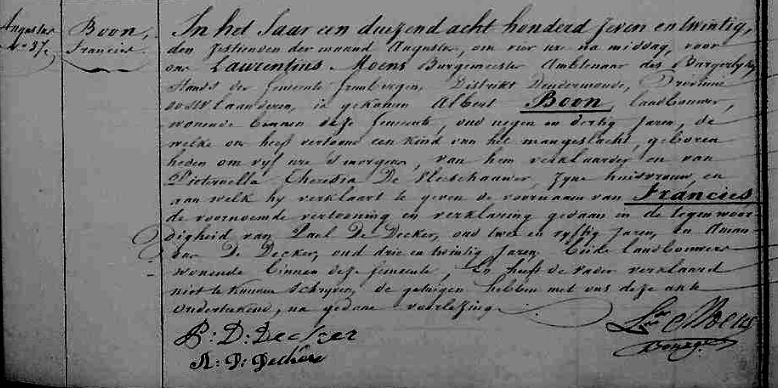 Augustus
N° 37.
Boon,
Francies.
In het Jaar een duizend acht honderd zeven en twintig,
den zestienden der maand Augustus, om vier ure na middag, voor
ons Laurentius Moens Burgemeester Ambtenaar des Burgerlyken
Stands der Gemeente Distrikt Dendermonde, Provincie
Oostvlaanderen, is gekomen Albert Boon, landbouwer,
wonende binnen deze Gemeente, oud negen en dertig Jaren, de
welke ons heeft vertoond een kind van het mangeslacht, geboren
heden om vyf ure smorgens, van hem verklaarder en van
Pieternella Theresia De Vleeschauwer, zyne huisvrouw, en
aan welk hy verklaart te geven de voornaam van Francies
de voornoemde vertooning en verklaring gedaan in de tegenwoor-
digheid van Paul De Decker, oud twee en vyftig Jaren, en Aman-
dus De Decker, oud drie en twintig Jaren, Beide landbouwers
wonende binnen deze Gemeente, En heeft de vader verklaard
niet te kunnen Schryven, de getuigen hebben met ons deze akte
onderteekend, na gedane voorlezing.
P: D: Decker
A: D: Decker
Moens